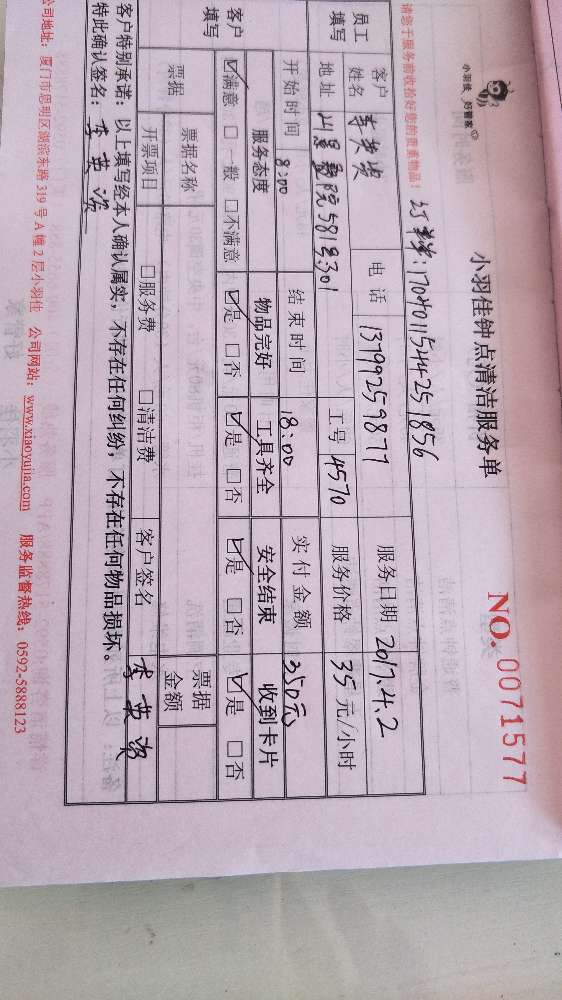 小羽佳_好管家
小羽佳钟点清洁服务单
NO. 0071577
请您于服务前收拾好您的贵重物品!
订单:17040115444251856
员工填写
客户姓名 电话 13799259877 服务日期 2017.4.2
地址 5813:301 工号 4570 服务价格 35 元/小时
开始时间 8:00 结束时间 18:00 实付金额 350元
客户填写
服务态度 物品完好 工具齐全 安全结束 收到卡片
☑满意 □一般 □不满意 ☑是 □否 ☑是 □否 ☑是 □否 ☑是 □否
票据 票据名称 票据金额
开票项目 □服务费 □清洁费 客户签名
客户特别承诺:以上填写经本人确认属实,不存在任何纠纷,不存在任何物品损坏。
特此确认签名:
公司地址:厦门市思明区湖滨东路 319 号 A 幢 2 层小羽佳 公司网站:www.xiaoyujia.com 服务监督热线:0592-5888123